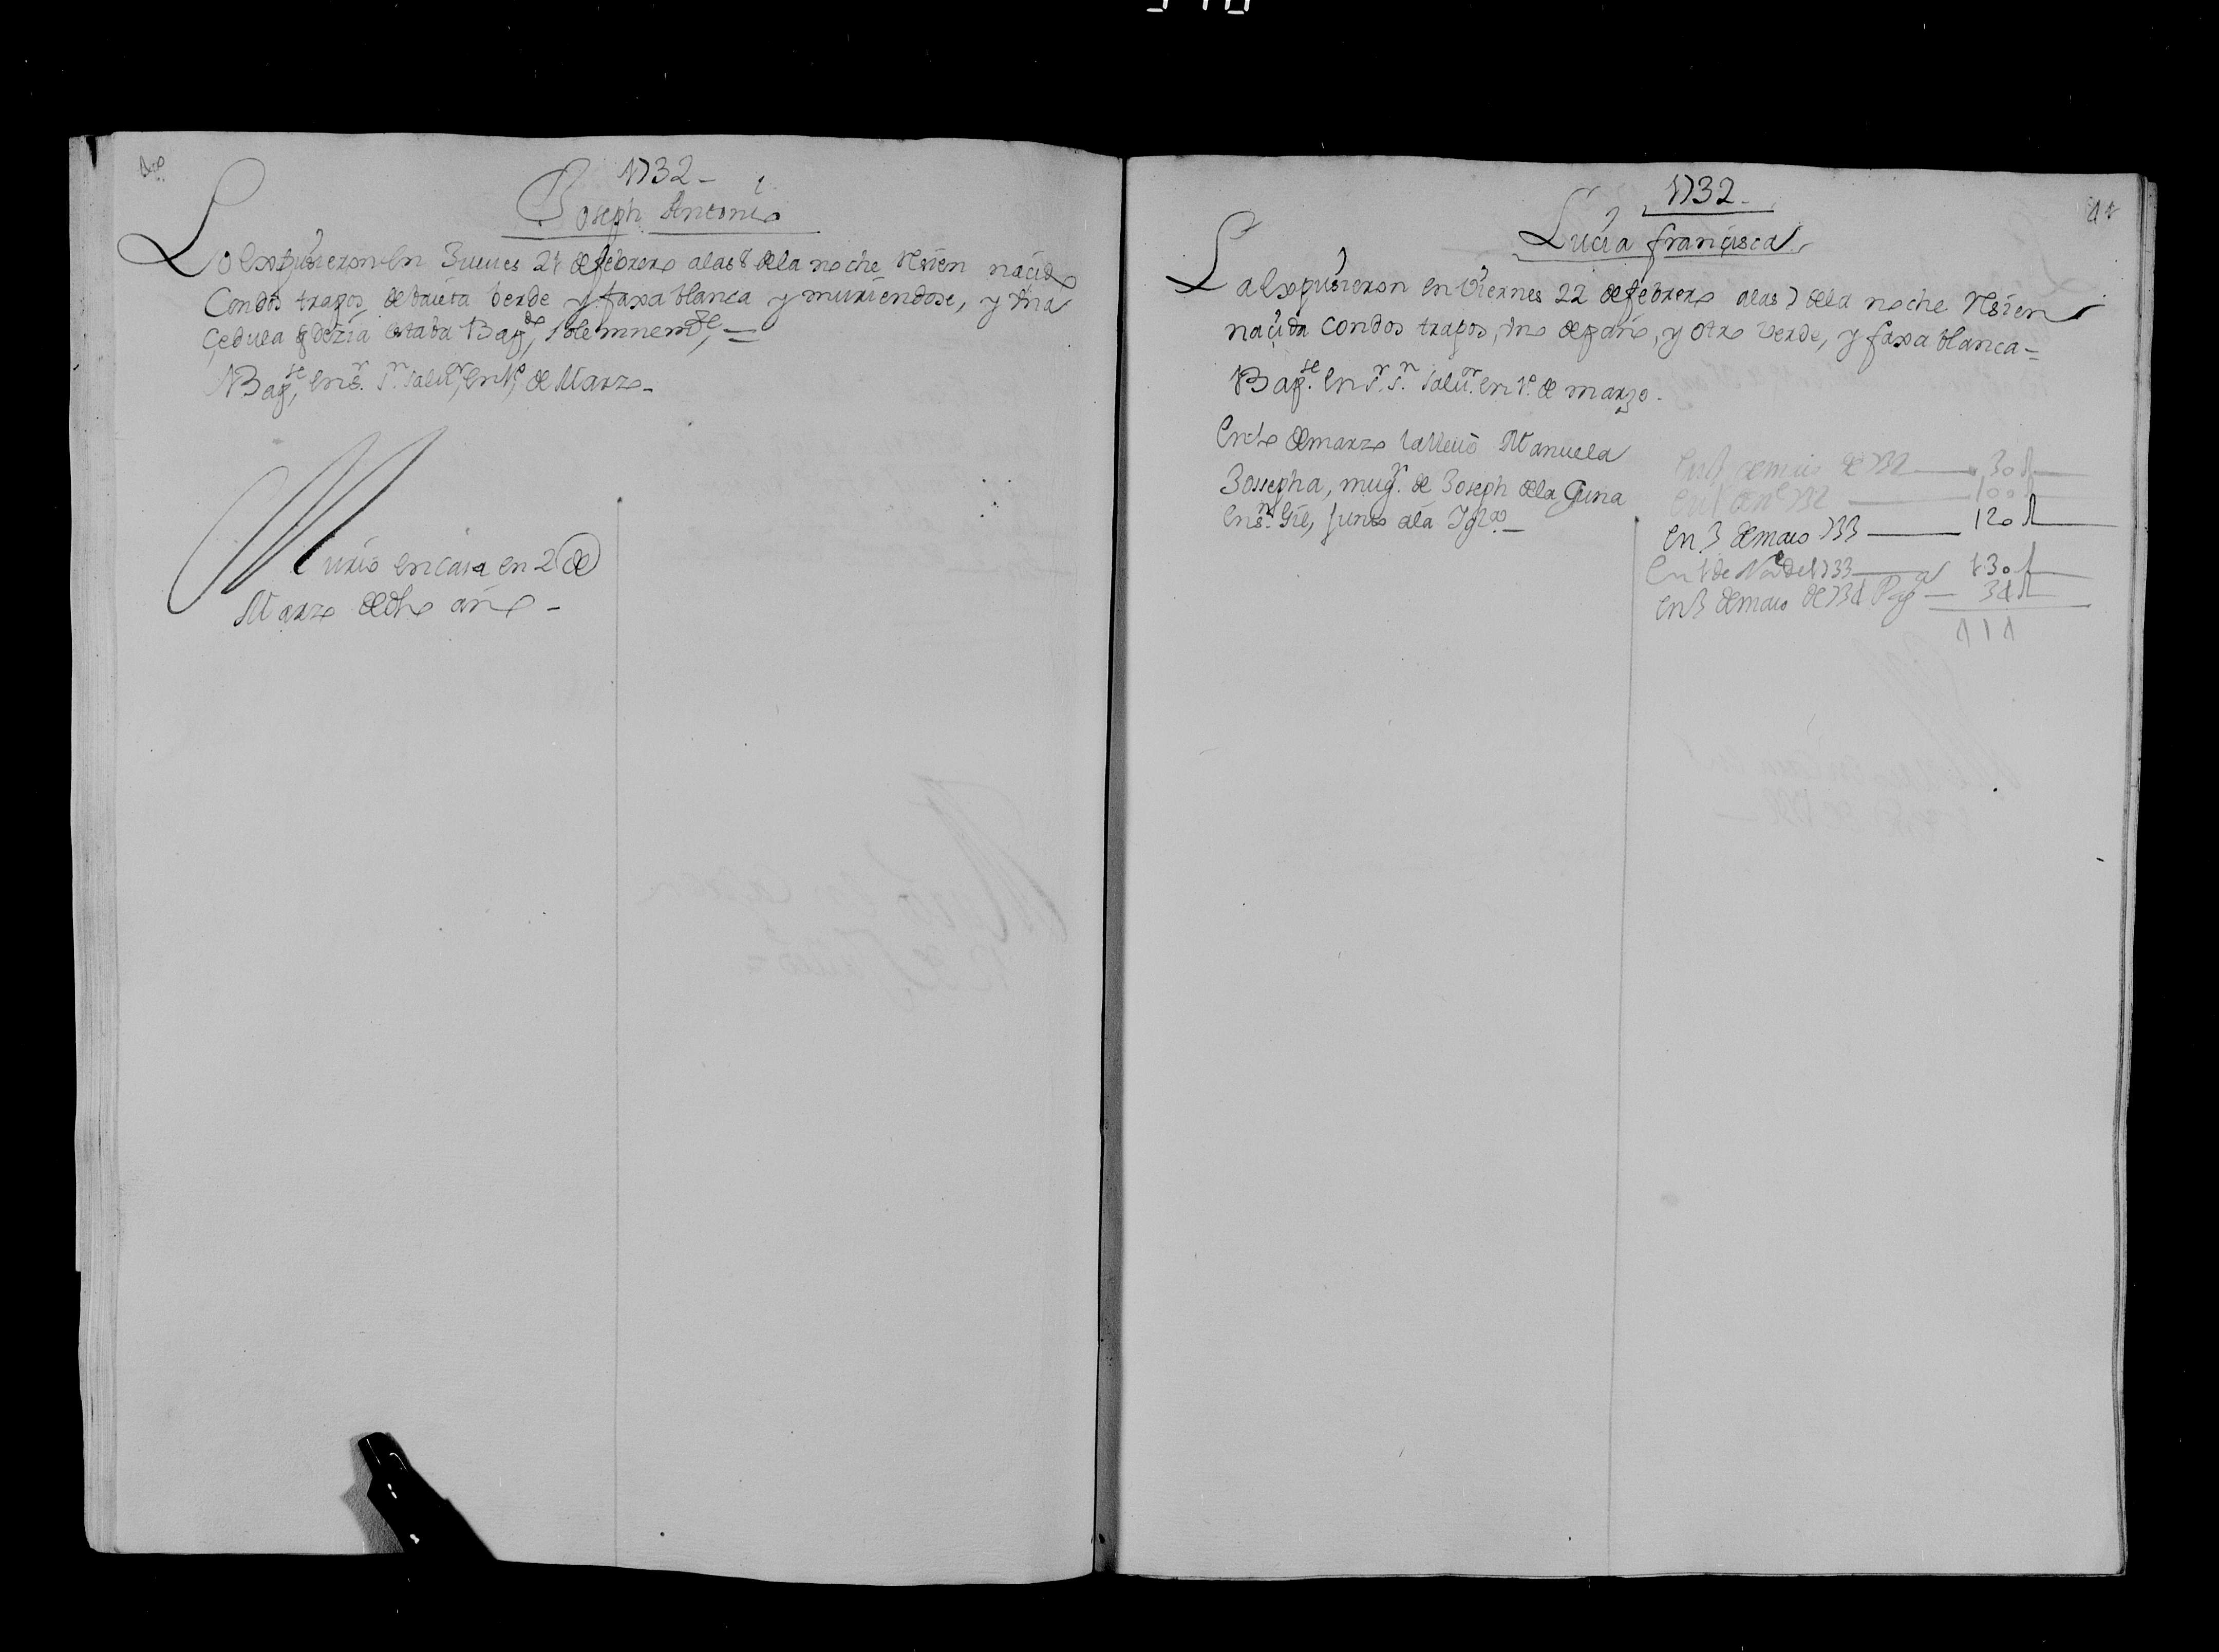 1732
Joseph Antonio
Lo expusieron en Jueves 21 de febrero a las 8 de la noche Resien nacido
Con dos trapos, de baieta berde y faxa blanca y muriendose, y vna
çedula q dezia estaba Bapdo, solemnemte,
Bapse, en sr. Sn. Salur, en 1º, de Marzo
Murio en casa en 2 de
Marzo de dho año
1732
41
Lucia françisca
La expusieron en Viernes 22 de febrero a las 7 de la noche Resien
naçida con dos trapos, vno de paño, y otro verde, y faxa blanca
Bapse. en sr. Sn. Salur. en 1º. de marzo.
En de marzo la lleuo Manuela
Jossepha, mugr. de Joseph de la Guna
en sn. Gil, junto a la Iglªª.
En 3 de maio de 732 30 R
En 1 de ne 732 100 R
En 3 de maio 733 120 R
En 1 de Noe de 1733 130 R
en 3 de maio de 734 Pag 34 R
414